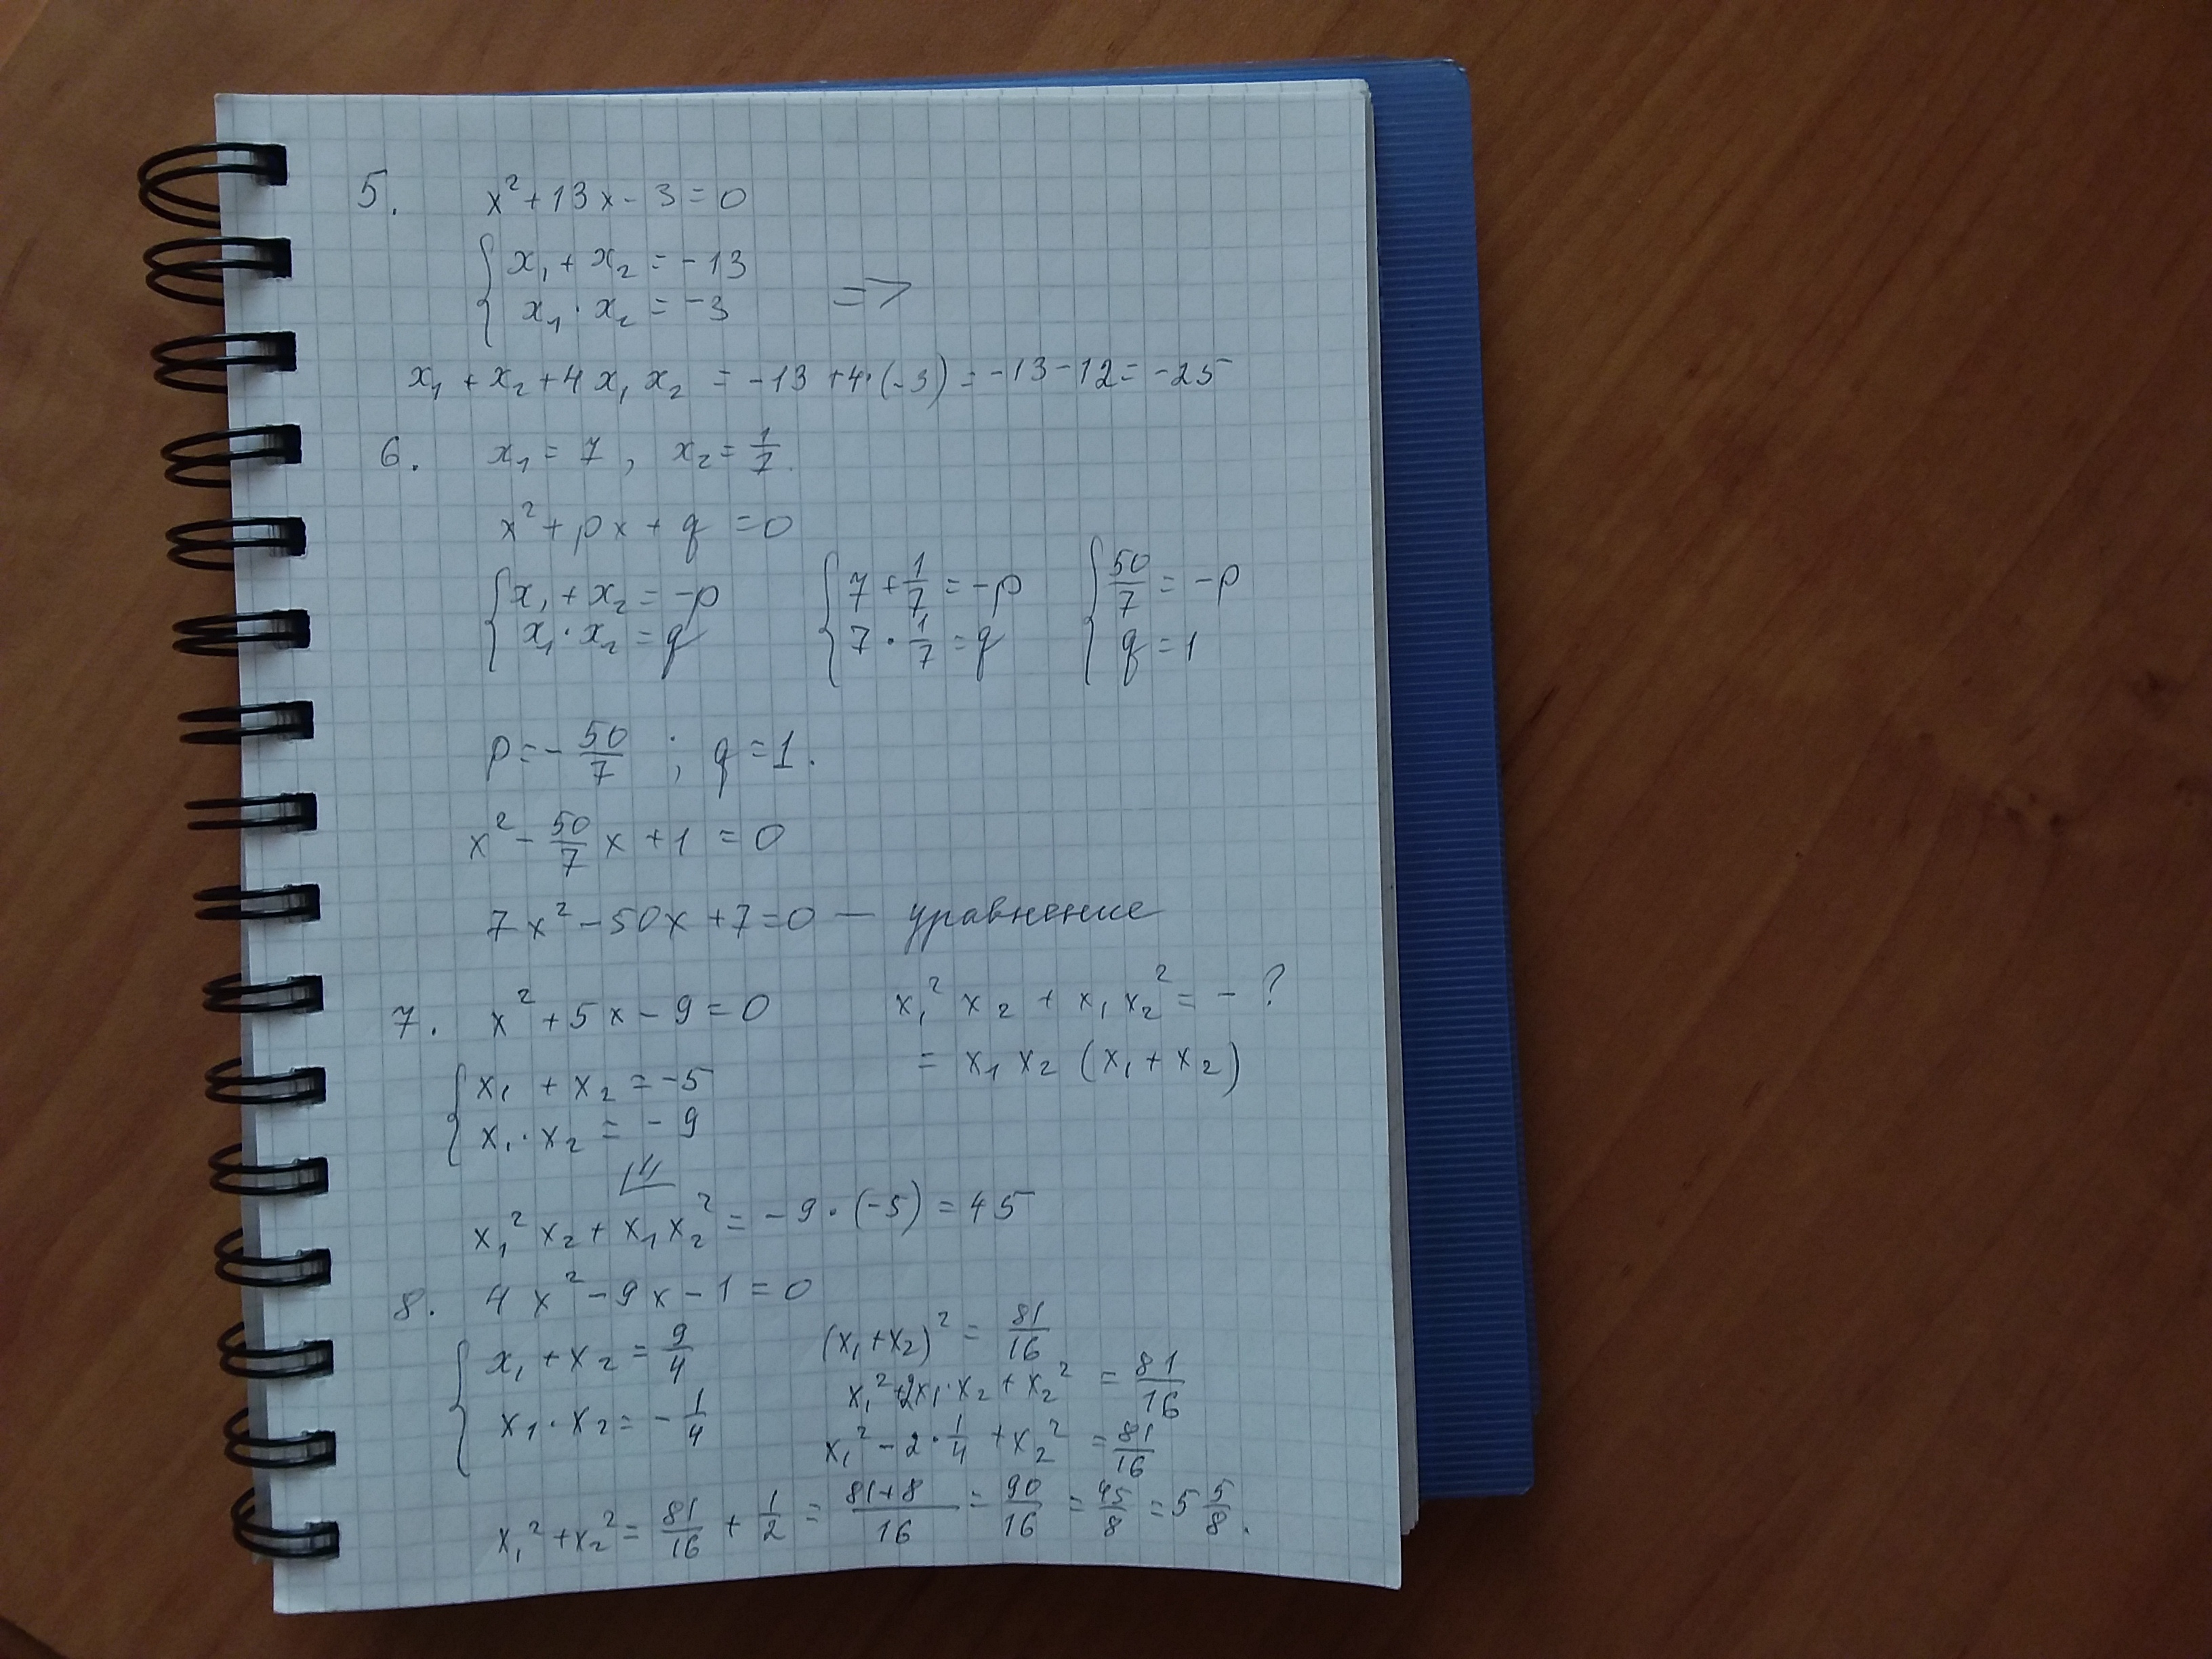 5. x² + 13x - 3 = 0
{ x₁ + x₂ = -13
x₁ · x₂ = -3 =>
x₁ + x₂ + 4x₁x₂ = -13 + 4·(-3) = -13 - 12 = -25
6. x₁ = 7, x₂ = 1/7.
x² + px + q = 0
{ x₁ + x₂ = -p { 7 + 1/7 = -p { 50/7 = -p
x₁ · x₂ = q 7 · 1/7 = q q = 1
p = - 50/7 ; q = 1.
x² - 50/7 x + 1 = 0
7x² - 50x + 7 = 0 — уравнение
7. x² + 5x - 9 = 0 x₁² x₂ + x₁ x₂² = - ?
= x₁ x₂ (x₁ + x₂)
{ x₁ + x₂ = -5
x₁ · x₂ = -9
x₁² x₂ + x₁ x₂² = -9 · (-5) = 45
8. 4x² - 9x - 1 = 0
{ x₁ + x₂ = 9/4 (x₁ + x₂)² = 81/16
x₁² + 2x₁ · x₂ + x₂² = 81/16
x₁ · x₂ = - 1/4 x₁² - 2 · 1/4 + x₂² = 81/16
x₁² + x₂² = 81/16 + 1/2 = 81+8/16 = 90/16 = 45/8 = 5 5/8.